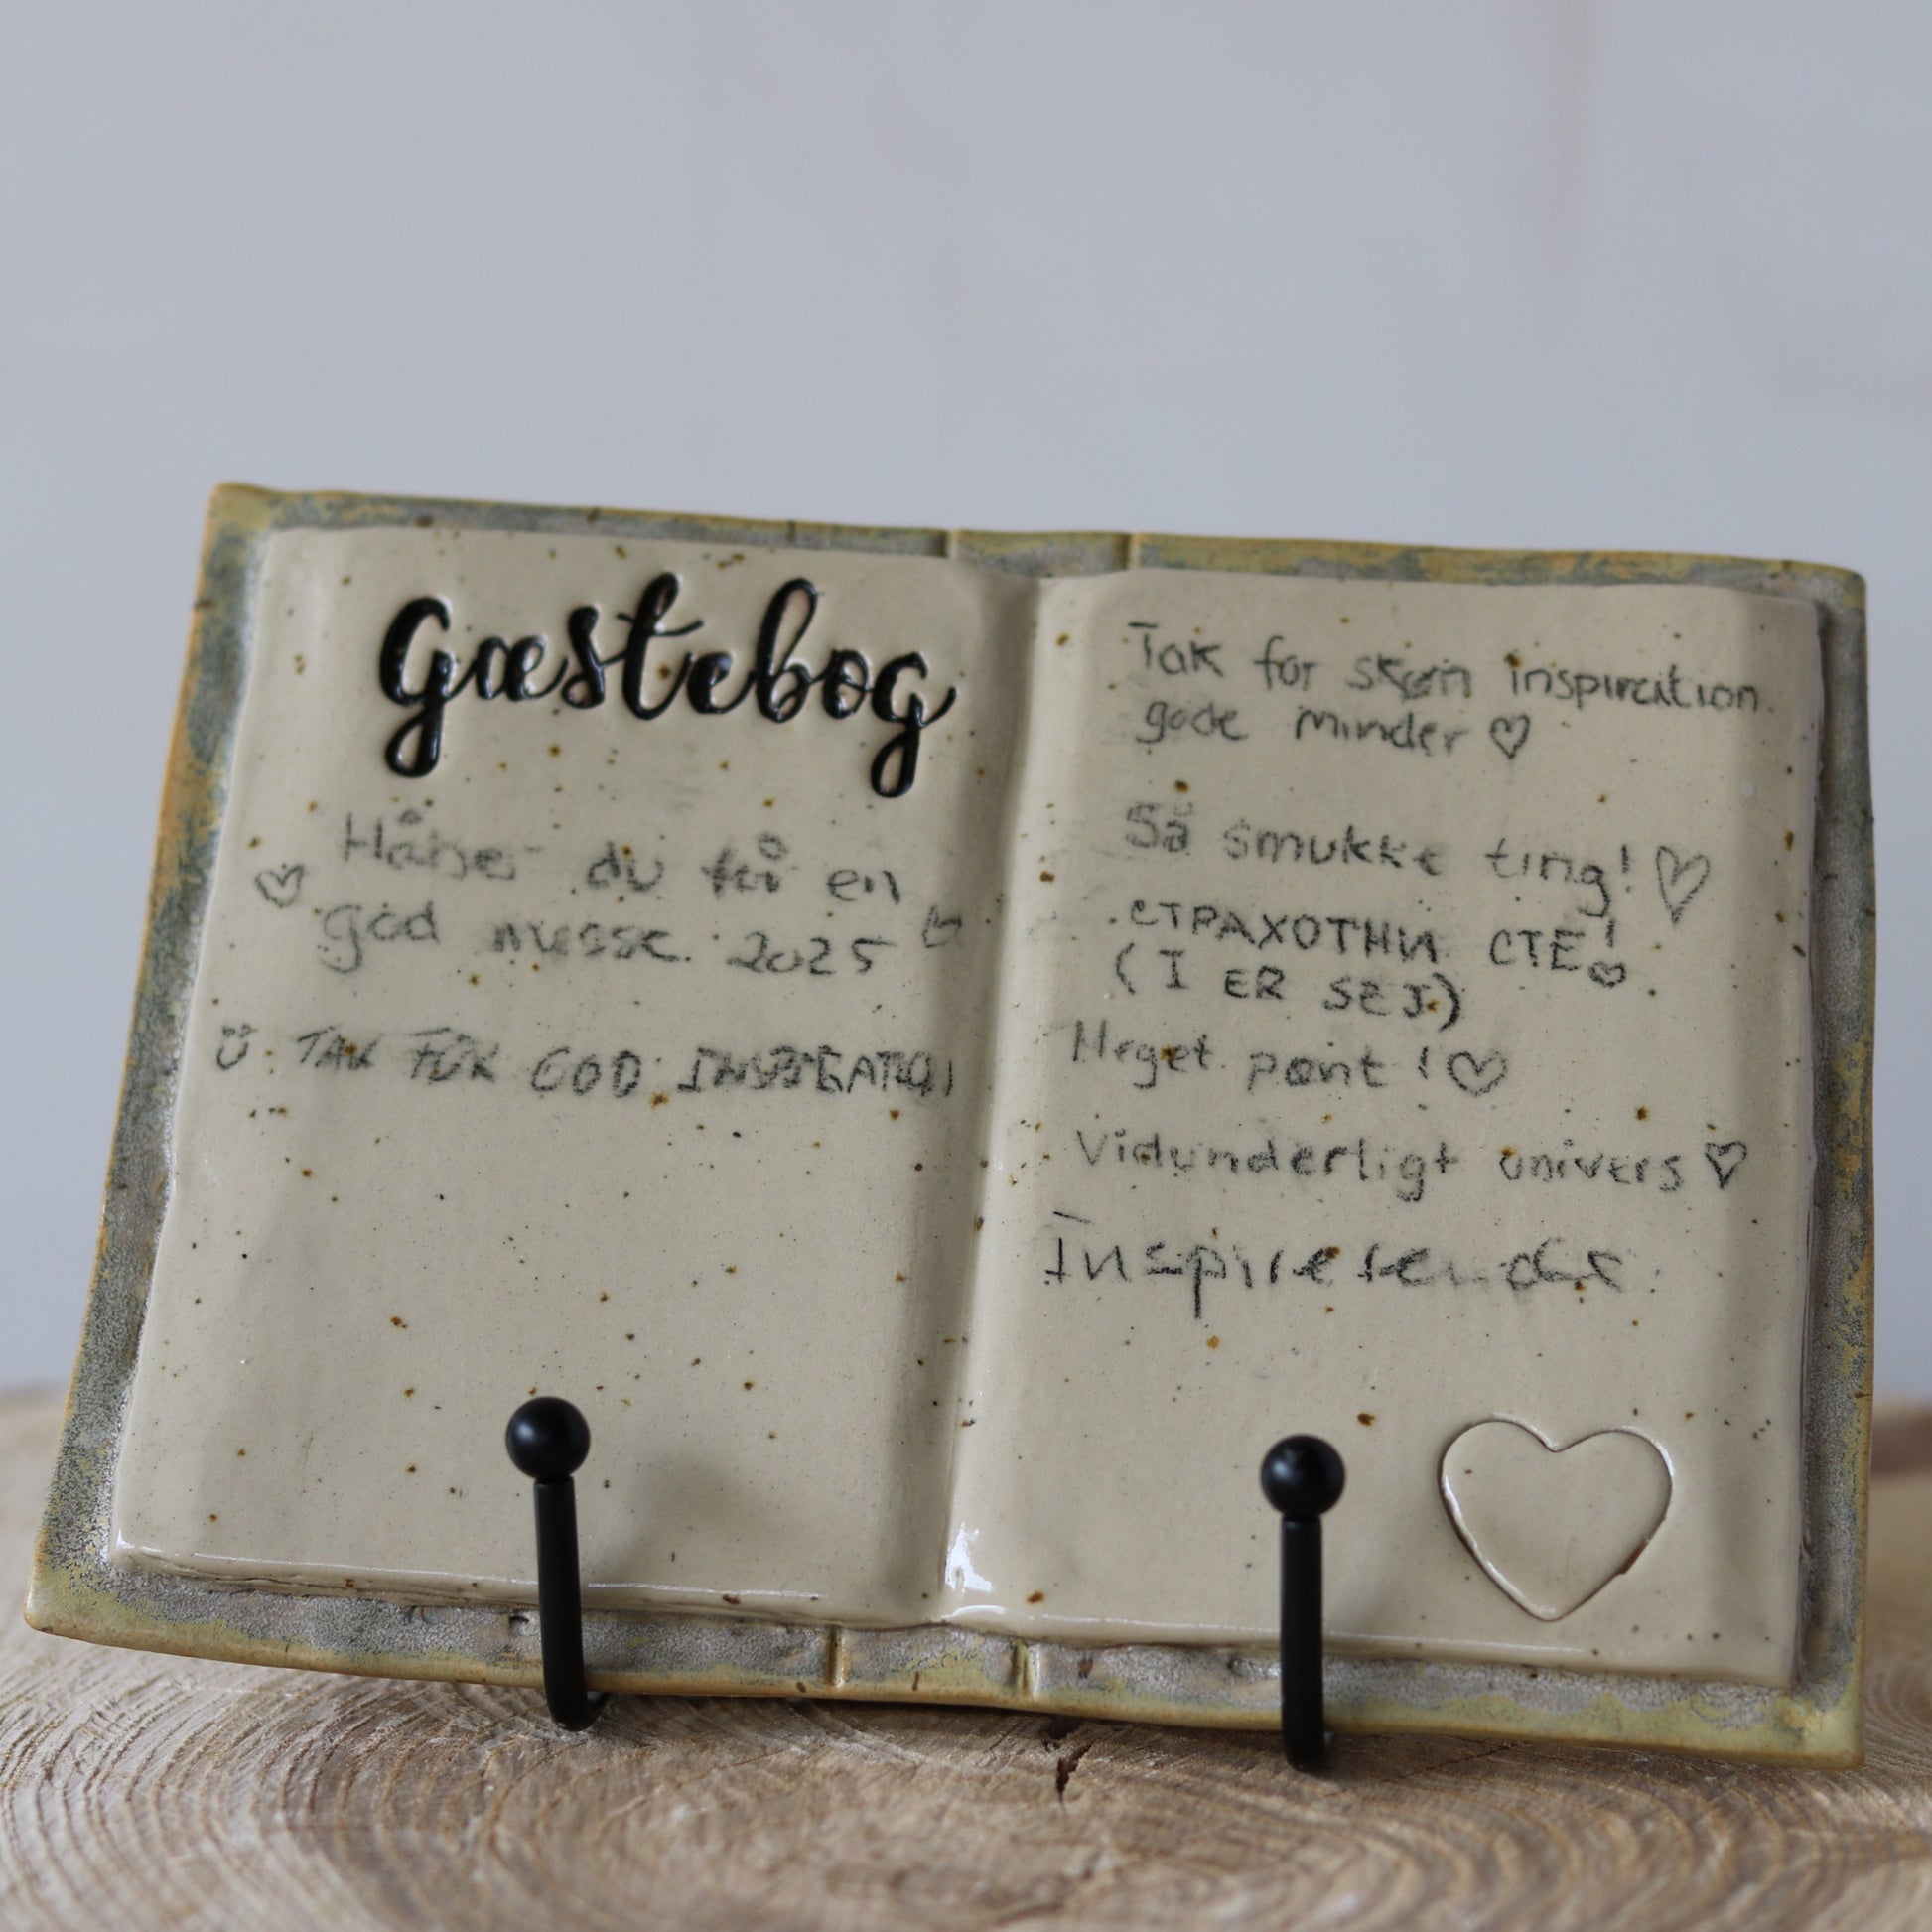 Gæstebog
Håber du får en
god messe 2025
TAK FOR GOD INSPIRATION
Tak for skøn inspiration
gode minder
Så smukke ting!
СТРАХОТНИ СТЕ!
(I ER SEJ)
Meget pænt!
Vidunderligt univers
Inspirerende